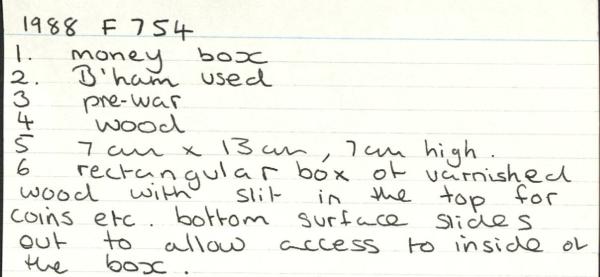 1988 F 754
1. money box
2. B'ham used
3 pre-war
4 wood
5 7cm x 13cm, 7cm high.
6 rectangular box of varnished
wood with slit in the top for
coins etc. bottom surface slides
out to allow access to inside of
the box.